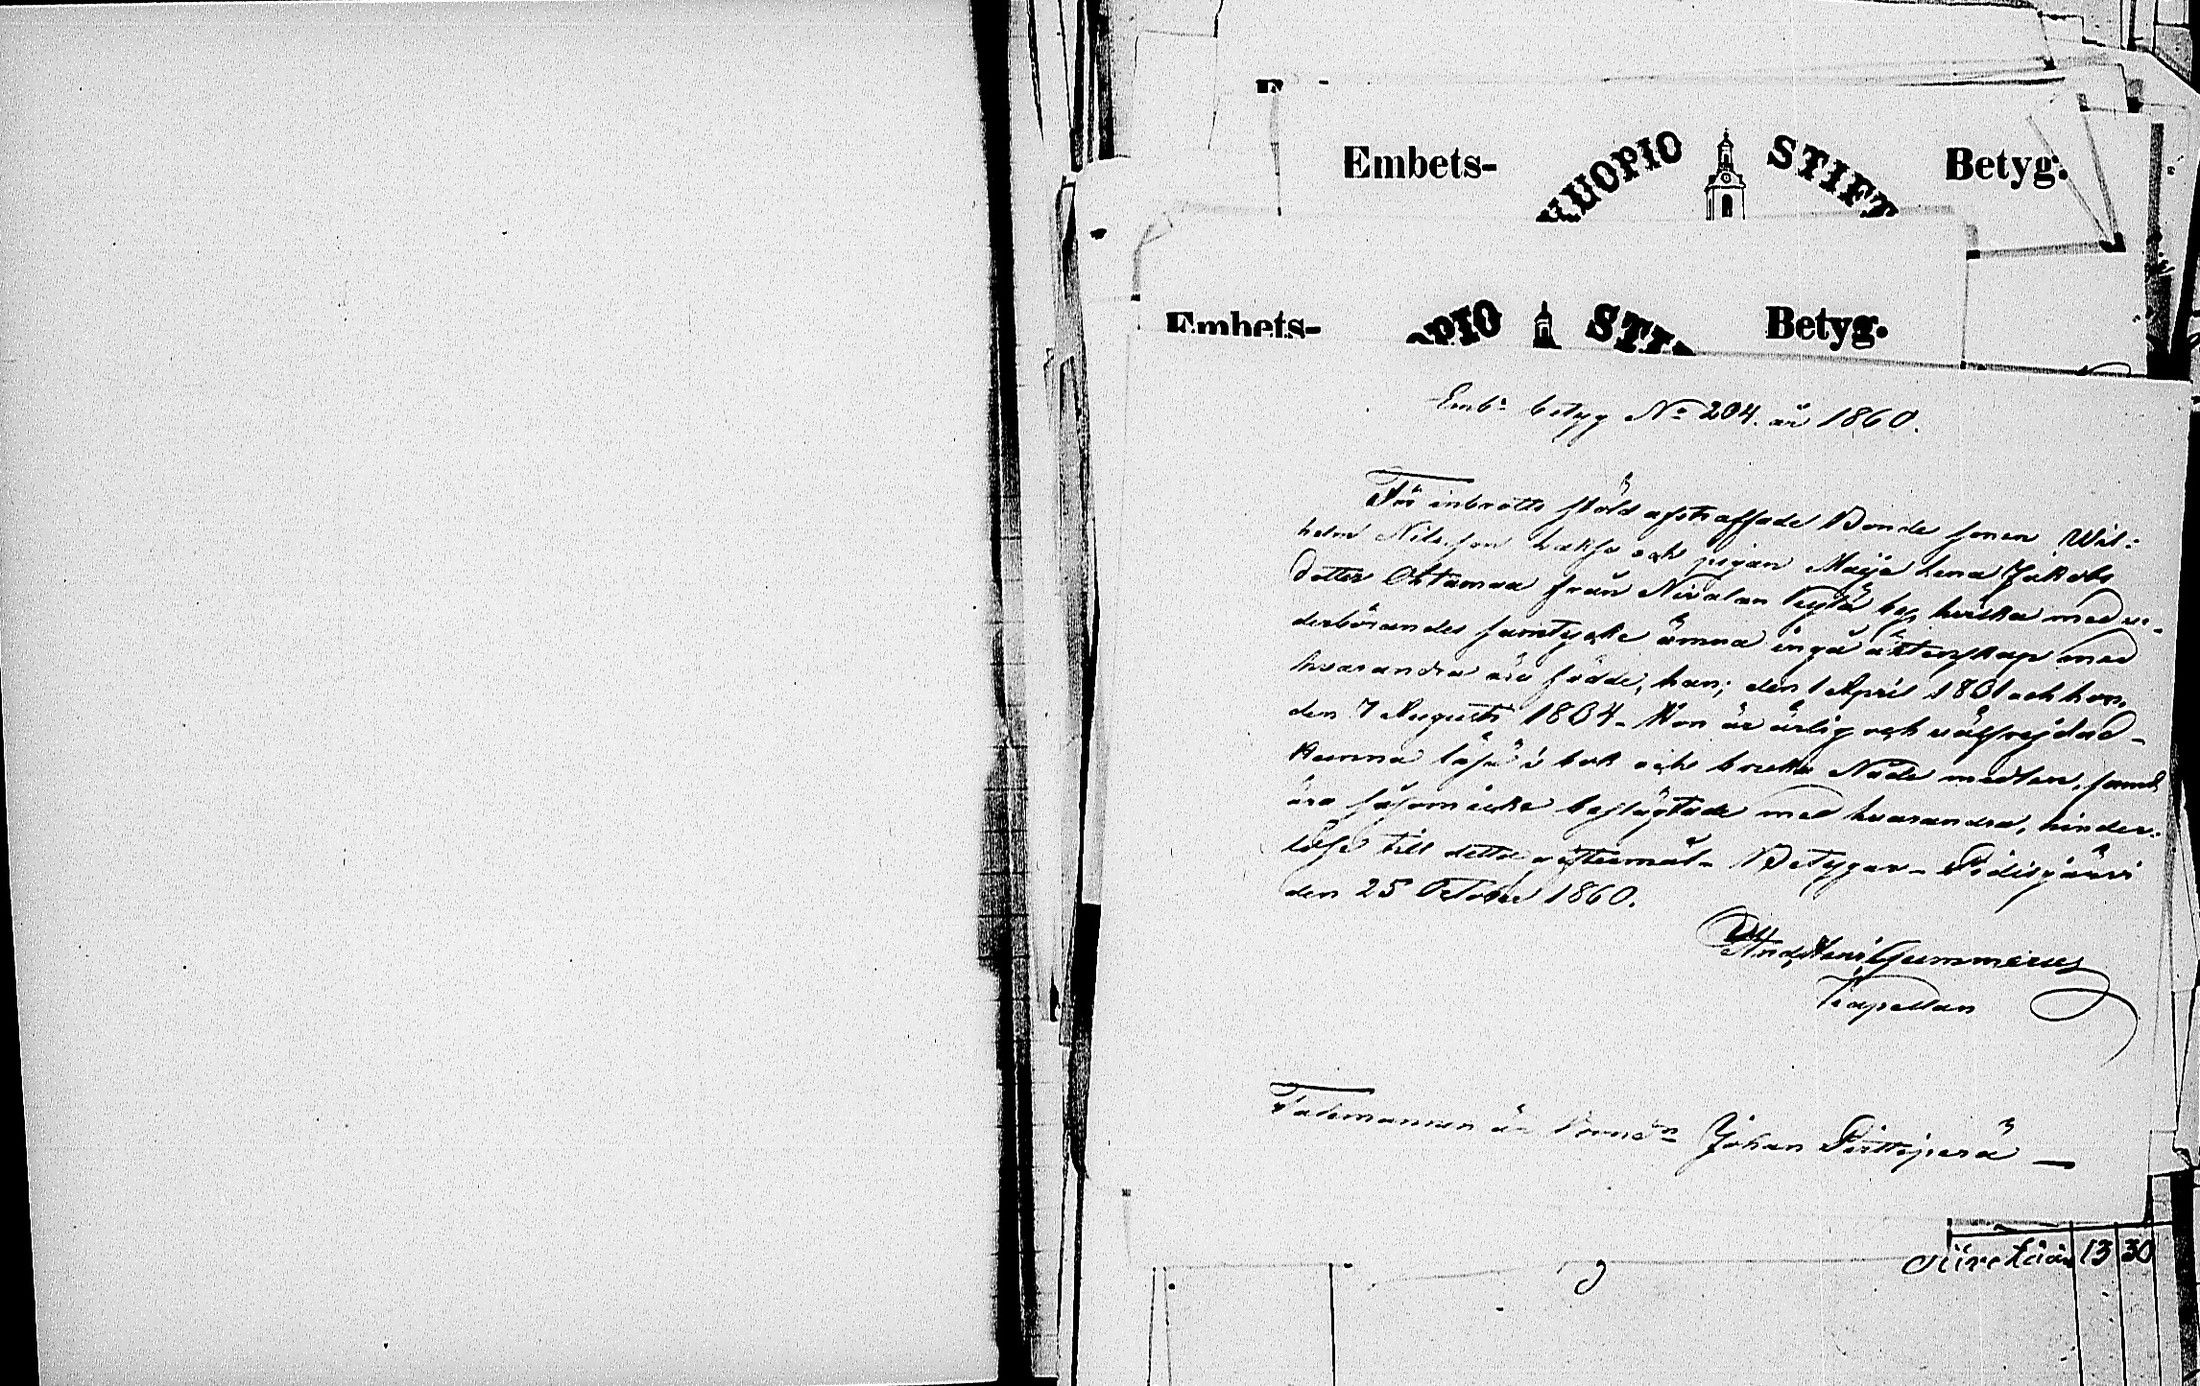 Embets- KUOPIO STIFT Betyg.
Embets- OPIO STI Betyg.
Embs betyg No 204. år 1860.
För inbrotts stöld afstraffade Bonde sonen Wil-
helm Nilsson och pigan Maija Lena Jakobs
dotter Ohtamaa från Nivalan hvilka med ve-
derbörandes samtycke ämna ingå äktenskap med
hvarandra äro födde, han; den 1 April 1801 och hon,
den 7 Augusti 1804. Hon är ärlig och välfrejdad -
kunna läsa i bok och bruka Nåde medlen, samt
äro såsom icke beslägtade med hvarandra, hinder-
lösa till detta giftermål. Betygar - Pidisjärvi
den 25 October 1860.
And. Henr. Gummerus
Kapellan
Talemannen är Bonden Johan Pirttiperä
Siiretään 13 30